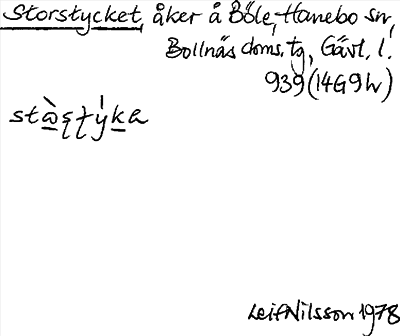 Storstycket, åker å Böle, Hanebo sn,
Bollnäs doms. tg, Gävl. l.
939 (14G9h)
Leif Nilsson 1978